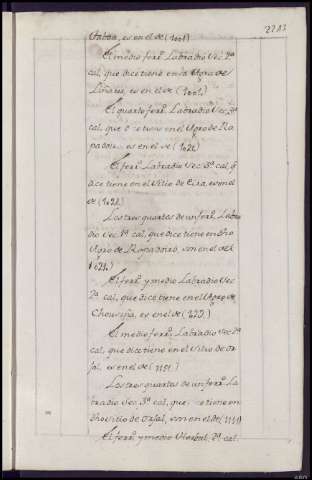 2283
es en el de (1001)
El medio ferr.º Labradio Sec. 2ª
cal, que dice tiene en la Agra de
Linares, es en el de (1001)
El quarto ferr.º Labradio Sec. 3ª
cal, que tiene en el Agro de Ra
padoiro, es en el de (1021)
El ferr.º Labradio Sec. 3ª cal, q.
dice tiene en el Sitio de Eira, es en el
de (1021)
Los tres quartos de un ferr.º Labra
dio Sec. 1ª cal, que dice tiene en dho
Agro de Rapadoiro, son en el del
(1021)
El ferr.º y medio Labradio Sec.
2ª cal, que dice tiene en el Agro de
Chousiña, es en el de
El medio ferr.º Labradio Sec. 2ª
cal, que dice tiene en el Sitio de Or
jal, es en el de (1151)
Los tres quartos de un ferr.º La
bradio Sec. 3ª cal, que tiene en
dho Sitio de Orjal, son en el de (1151)
El ferr.º y medio Herbal, 2ª cal.